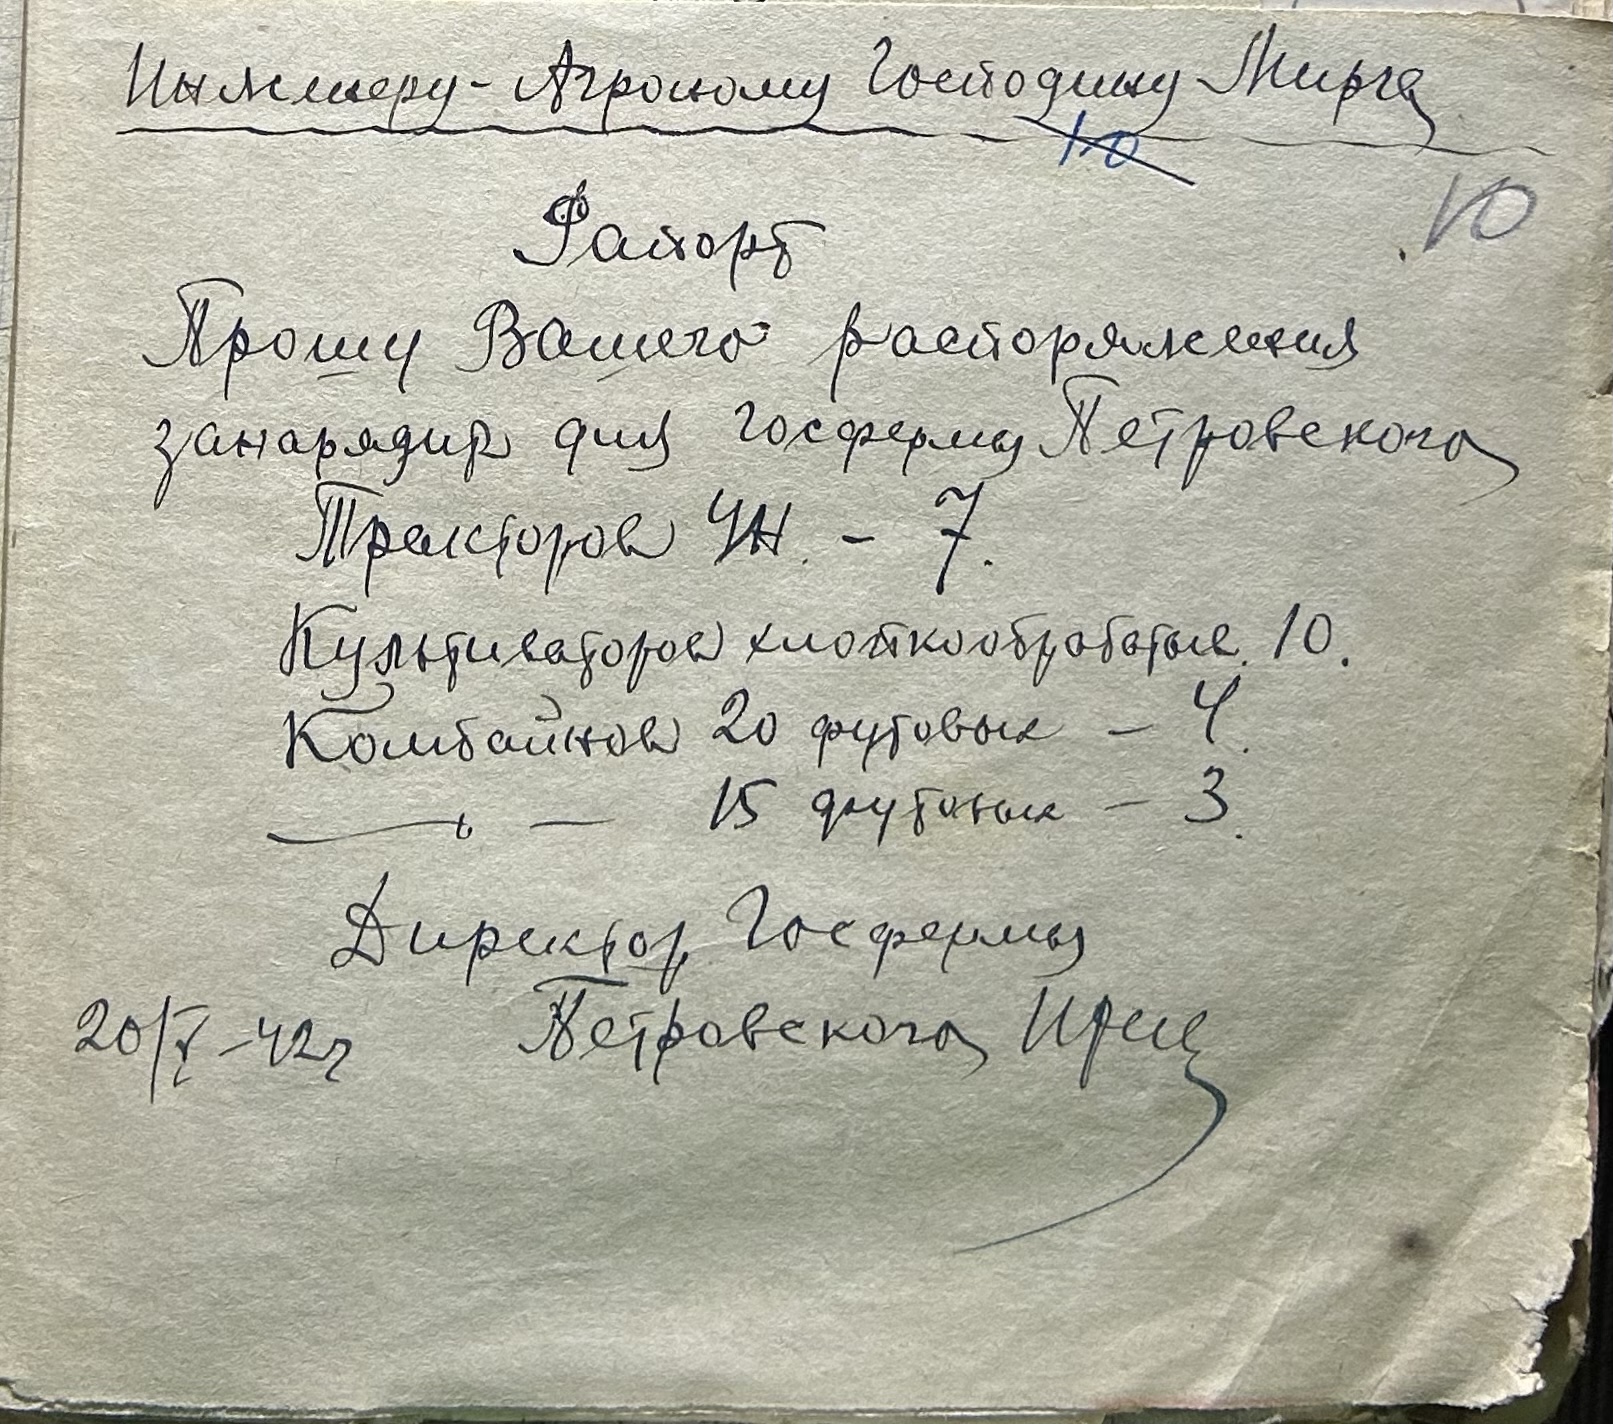 Инженеру-Агроному Господину Мирча
10
10
Рапорт
Прошу Вашего распоряжения
занарядир для госфермы Петровского
Тракторов ЧН. - 7.
Культиваторов хлопкообрабатыв. 10.
Комбайнов 20 футовых - 4.
—„— 15 футовых - 3.
Директор Госфермы
Петровского
20/V-42г